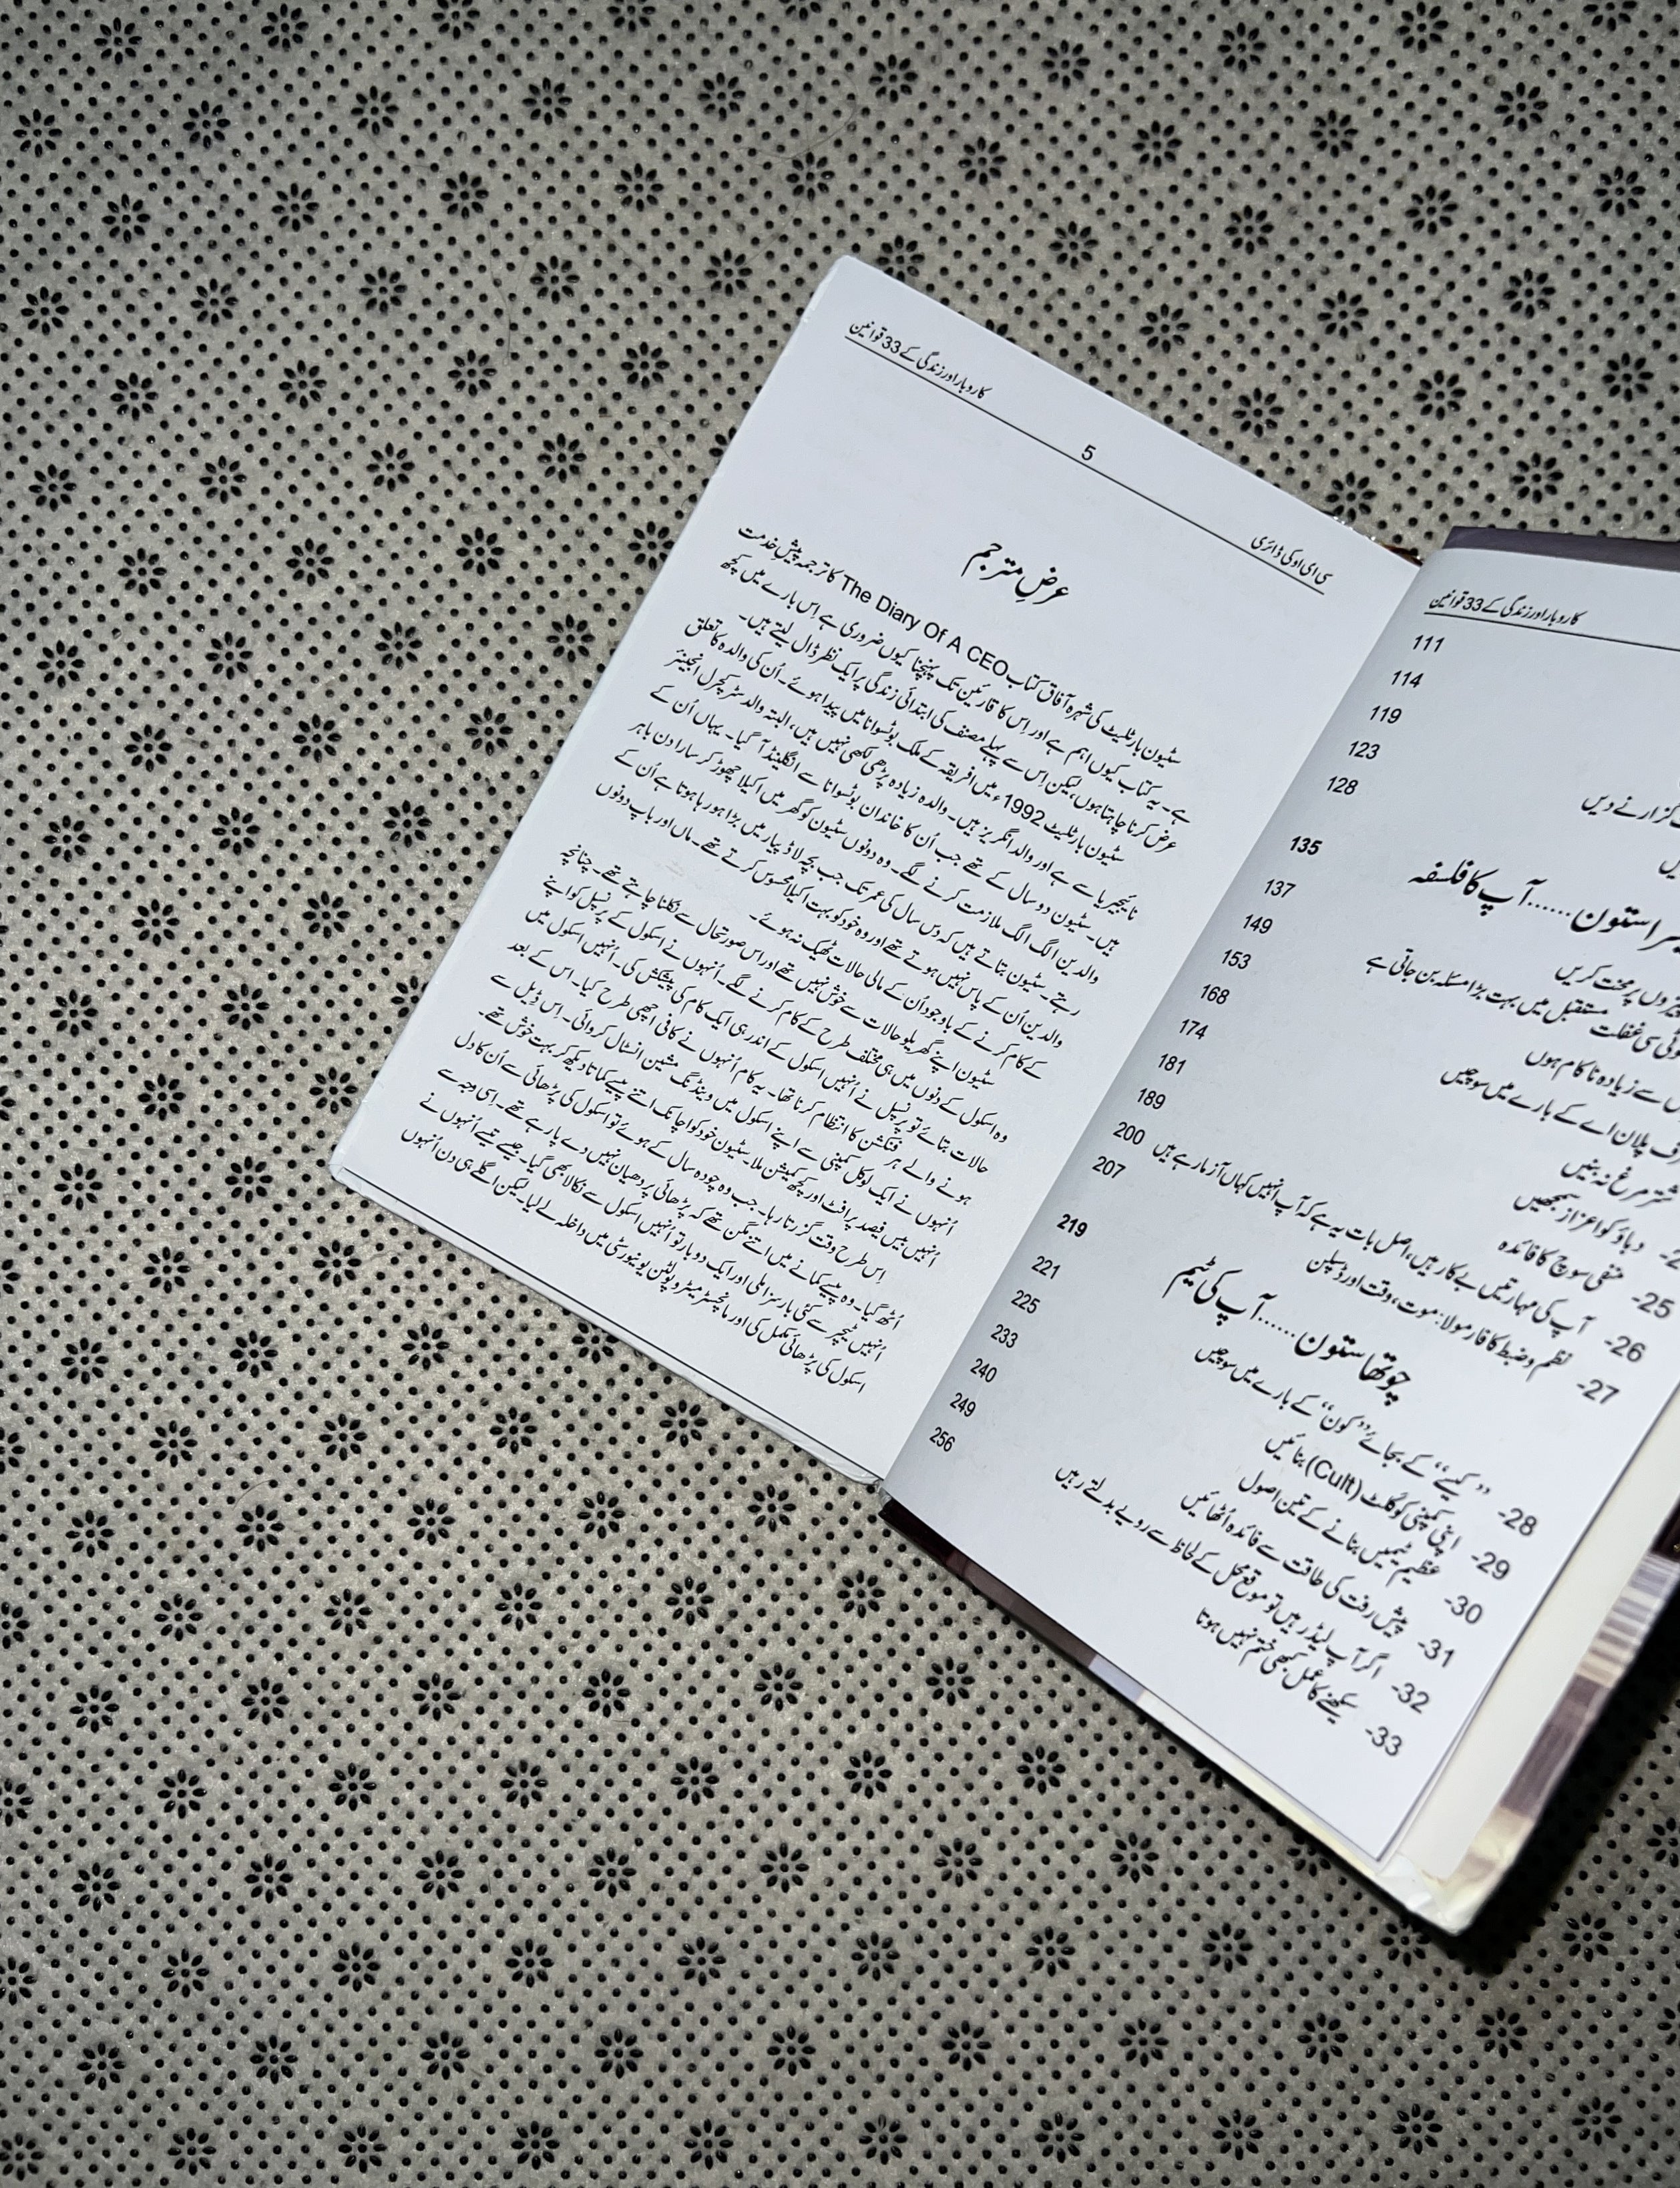 کاروبار اور زندگی کے 33 قوانین
111
114
119
123
128
گزارنے دیں
135
ستون......آپ کا فلسفہ
137
پر محنت کریں
149
مستقبل میں بہت بڑا مسئلہ بن جاتی ہے
سی غفلت
153
سے زیادہ ناکام ہوں
168
پلان اے کے بارے میں سوچیں
174
شتر مرغ نہ بنیں
181
دباؤ کو اعزاز سمجھیں
189
25- منفی سوچ کا فائدہ
200
26- آپ کی مہارتیں بے کار ہیں، اصل بات یہ ہے کہ آپ انہیں کہاں آزما رہے ہیں
207
27- نظم و ضبط کا فارمولا: موت، وقت اور ڈسپلن
219
چوتھا ستون......آپ کی ٹیم
221
28- ’’کیسے‘‘ کے بجائے ’’کون‘‘ کے بارے میں سوچیں
225
29- اپنی کمپنی کو کلٹ (Cult) بنائیں
233
30- عظیم ٹیمیں بنانے کے تین اصول
240
31- پیش رفت کی طاقت سے فائدہ اُٹھائیں
249
32- اگر آپ لیڈر ہیں تو موقع محل کے لحاظ سے رویے بدلتے رہیں
256
33- سیکھنے کا عمل کبھی ختم نہیں ہوتا
سی ای او کی ڈائری 5 کاروبار اور زندگی کے 33 قوانین
عرضِ مترجم
سٹیون بارٹلیٹ کی شہرہ آفاق کتاب The Diary Of A CEO کا ترجمہ پیشِ خدمت
ہے۔ یہ کتاب کیوں اہم ہے اور اِس کا قارئین تک پہنچنا کیوں ضروری ہے اِس بارے میں کچھ
عرض کرنا چاہتا ہوں، لیکن اِس سے پہلے مصنف کی ابتدائی زندگی پر ایک نظر ڈال لیتے ہیں۔
سٹیون بارٹلیٹ 1992ء میں افریقہ کے ملک بوٹسوانا میں پیدا ہوئے۔ اُن کی والدہ کا تعلق
نائیجیریا سے ہے اور والد انگریز ہیں۔ والدہ زیادہ پڑھی لکھی نہیں ہیں، البتہ والد سٹرکچرل انجینئر
ہیں۔ سٹیون دو سال کے تھے جب اُن کا خاندان بوٹسوانا سے انگلینڈ آ گیا۔ یہاں اُن کے
والدین الگ الگ ملازمت کرنے لگے۔ وہ دونوں سٹیون کو گھر میں اکیلا چھوڑ کر سارا دن باہر
رہتے۔ سٹیون بتاتے ہیں کہ دس سال کی عمر تک جب بچہ لاڈ پیار میں بڑا ہو رہا ہوتا ہے اُن کے
والدین اُن کے پاس نہیں ہوتے تھے اور وہ خود کو بہت اکیلا محسوس کرتے تھے۔ ماں اور باپ دونوں
کے کام کرنے کے باوجود اُن کے مالی حالات ٹھیک نہ ہوئے۔
سٹیون اپنے گھریلو حالات سے خوش نہیں تھے اور اس صورتحال سے نکلنا چاہتے تھے۔ چنانچہ
وہ اسکول کے دنوں میں ہی مختلف طرح کے کام کرنے لگے۔ اُنہوں نے اسکول کے پرنسپل کو اپنے
حالات بتائے تو پرنسپل نے اُنہیں اسکول کے اندر ہی ایک کام کی پیشکش کی۔ اُنہیں اسکول میں
ہونے والے ہر فنکشن کا انتظام کرنا تھا۔ یہ کام اُنہوں نے کافی اچھی طرح کیا۔ اس کے بعد
اُنہوں نے ایک لوکل کمپنی سے اپنے اسکول میں وینڈنگ مشین انسٹال کروائی۔ اِس ڈیل سے
اُنہیں بیس فیصد پرافٹ اور کچھ کمیشن ملا۔ سٹیون خود کو اچانک اتنے پیسے کماتا دیکھ کر بہت خوش تھے۔
اِس طرح وقت گزرتا رہا۔ جب وہ چودہ سال کے ہوئے تو اسکول کی پڑھائی سے اُن کا دل
اُٹھ گیا۔ وہ پیسے کمانے میں اتنے مگن تھے کہ پڑھائی پر دھیان نہیں دے پا رہے تھے۔ اِسی وجہ سے
اُنہیں ٹیچر سے کئی بار سزا ملی اور ایک دو بار تو اُنہیں اسکول سے نکالا بھی گیا۔ جیسے تیسے اُنہوں نے
اسکول کی پڑھائی مکمل کی اور مانچسٹر میٹروپولٹن یونیورسٹی میں داخلہ لے لیا۔ لیکن اگلے ہی دن اُنہوں